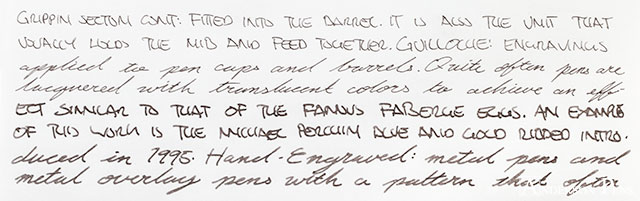 GRIPPIN SECTION CONT: FITTED INTO THE BARREL. IT IS ALSO THE UNIT THAT
USUALLY HOLDS THE NIB AND FEED TOGETHER. GUILLOCHE: ENGRAVINGS
applied to pen caps and barrels. Quite often pens are
lacquered with translucent colors to achieve an eff-
ECT SIMILAR TO THAT OF THE FAMOUS FABERGE EGGS. AN EXAMPLE
OF THIS WORK IS THE MICHAEL PERCHIN BLUE AND GOLD RIBBED INTRO-
duced in 1995. Hand-Engraved: metal pens and
metal overlay pens with a pattern that often